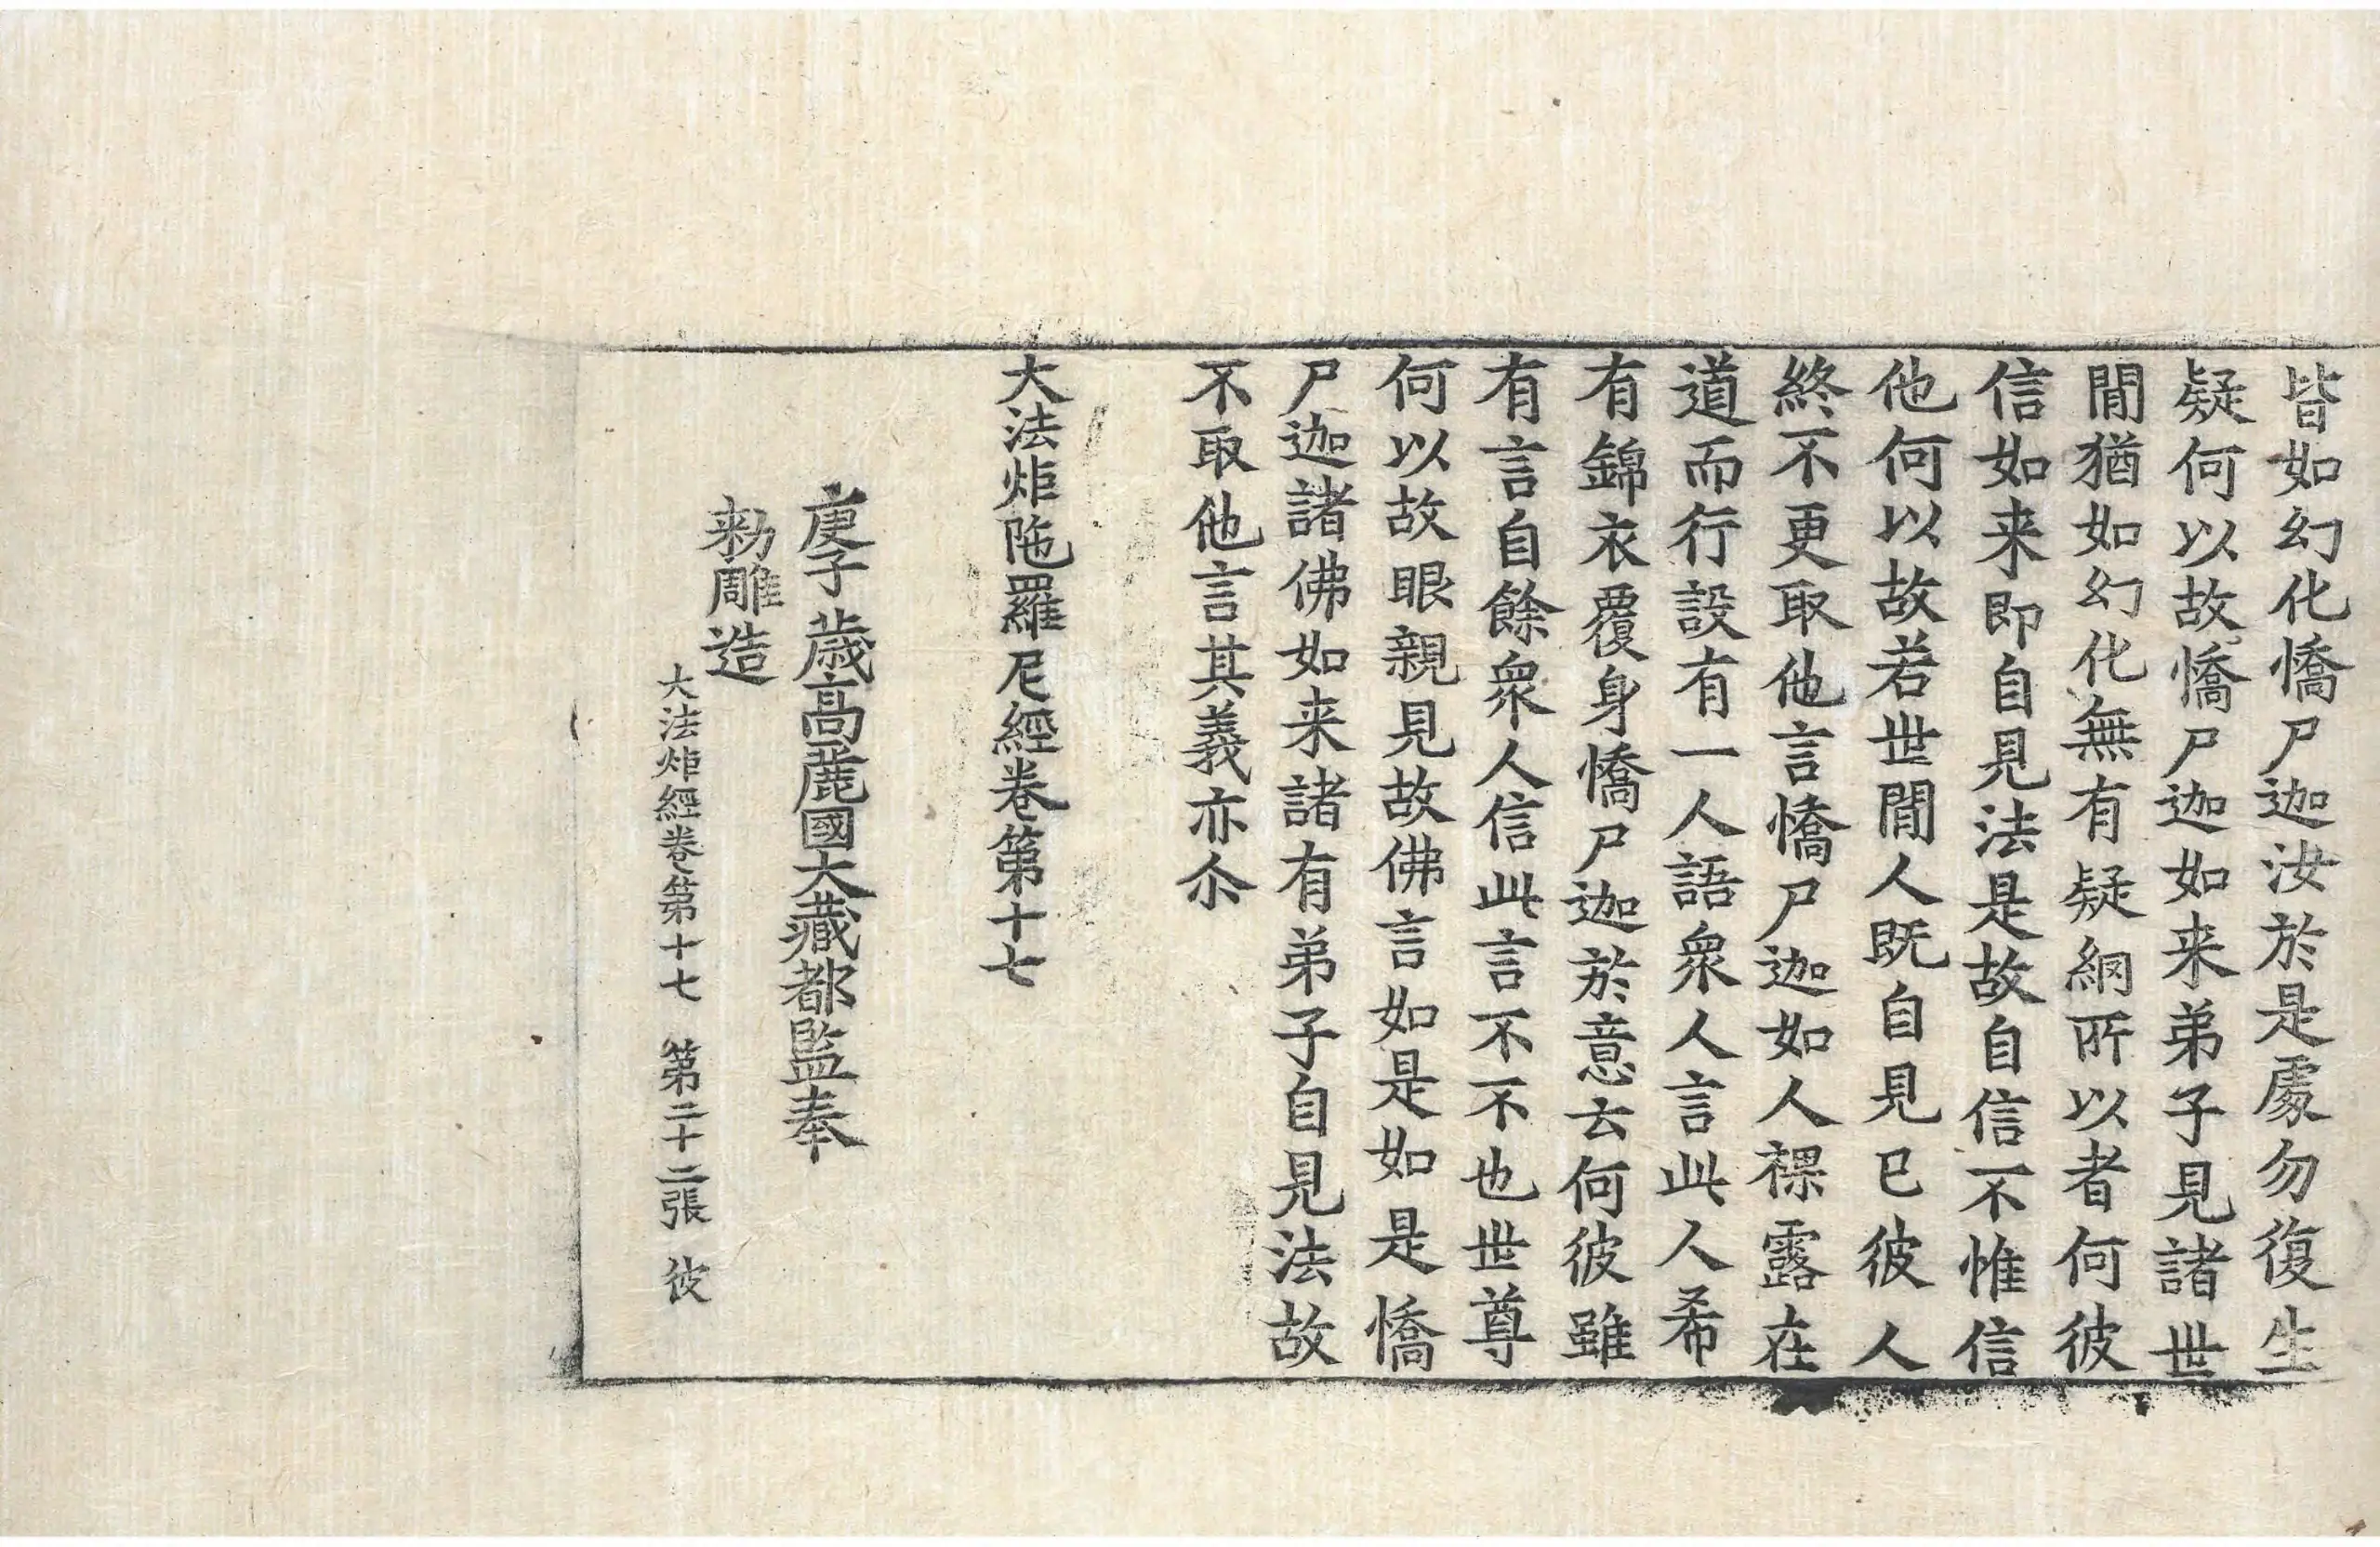 皆如幻化憍尸迦汝於是處勿復生
疑何以故憍尸迦如来弟子見諸世
閒猶如幻化無有疑網所以者何彼
信如来即自見法是故自信不惟信
他何以故若世閒人既自見已彼人
終不更取他言憍尸迦如人裸露在
道而行設有一人語衆人言此人希
有錦衣覆身憍尸迦於意云何彼雖
有言自餘衆人信此言不不也世尊
何以故眼親見故佛言如是如是憍
尸迦諸佛如来諸有弟子自見法故
不取他言其義亦尒
大法炬陁羅尼經卷第十七
庚子歳高麗國大藏都監奉
勑雕造
大法炬經卷第十七 第二十二張 彼